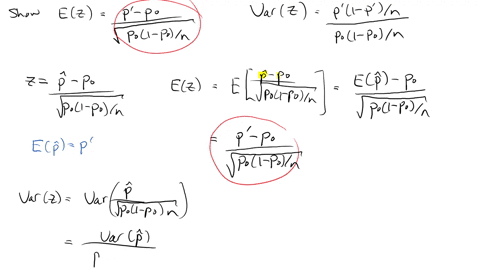 Show E(z) = (p' - p₀) / √(p₀(1-p₀)/n)    Var(z) = (p'(1-p')/n) / (p₀(1-p₀)/n)
z = (p̂ - p₀) / √(p₀(1-p₀)/n)    E(z) = E[(p̂ - p₀) / √(p₀(1-p₀)/n)] = (E(p̂) - p₀) / √(p₀(1-p₀)/n)
E(p̂) = p'    = (p' - p₀) / √(p₀(1-p₀)/n)
Var(z) = Var(p̂ / √(p₀(1-p₀)/n))
= Var(p̂) / p